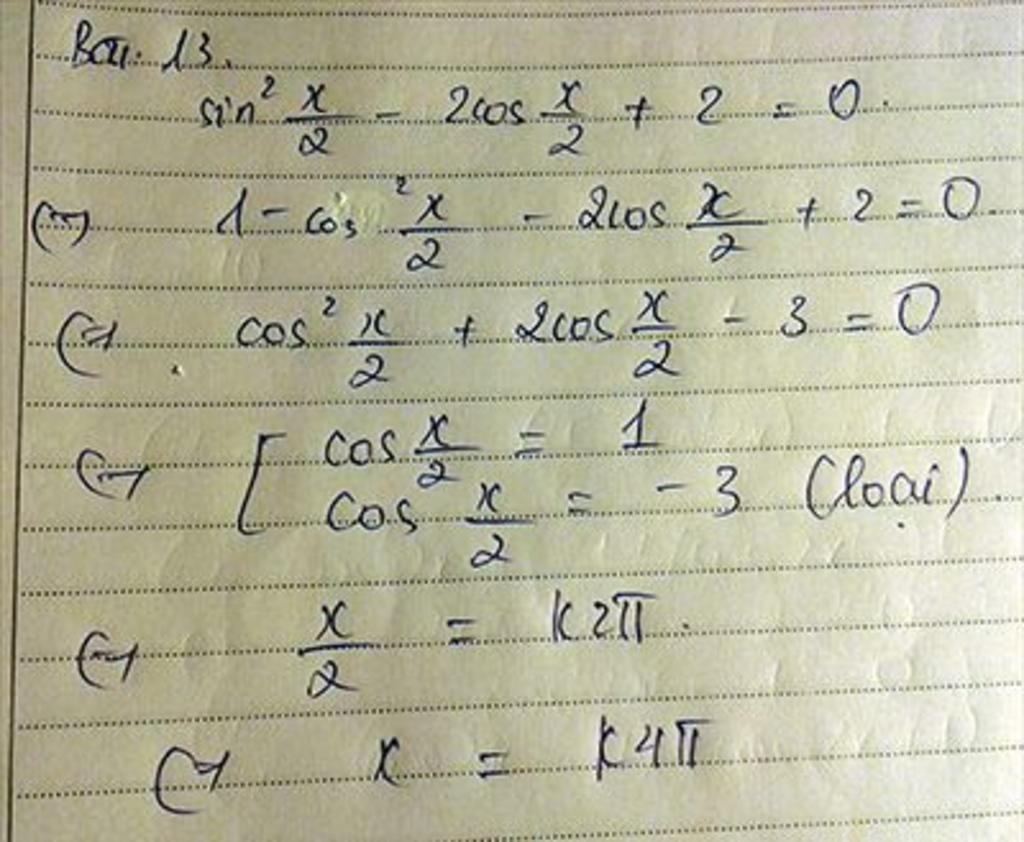 Bài 13.
sin² x/2 - 2cos x/2 + 2 = 0.
⇔ 1 - cos² x/2 - 2cos x/2 + 2 = 0.
⇔ cos² x/2 + 2cos x/2 - 3 = 0
⇔ [ cos x/2 = 1
cos x/2 = -3 (loại).
⇔ x/2 = k2π.
⇔ x = k4π